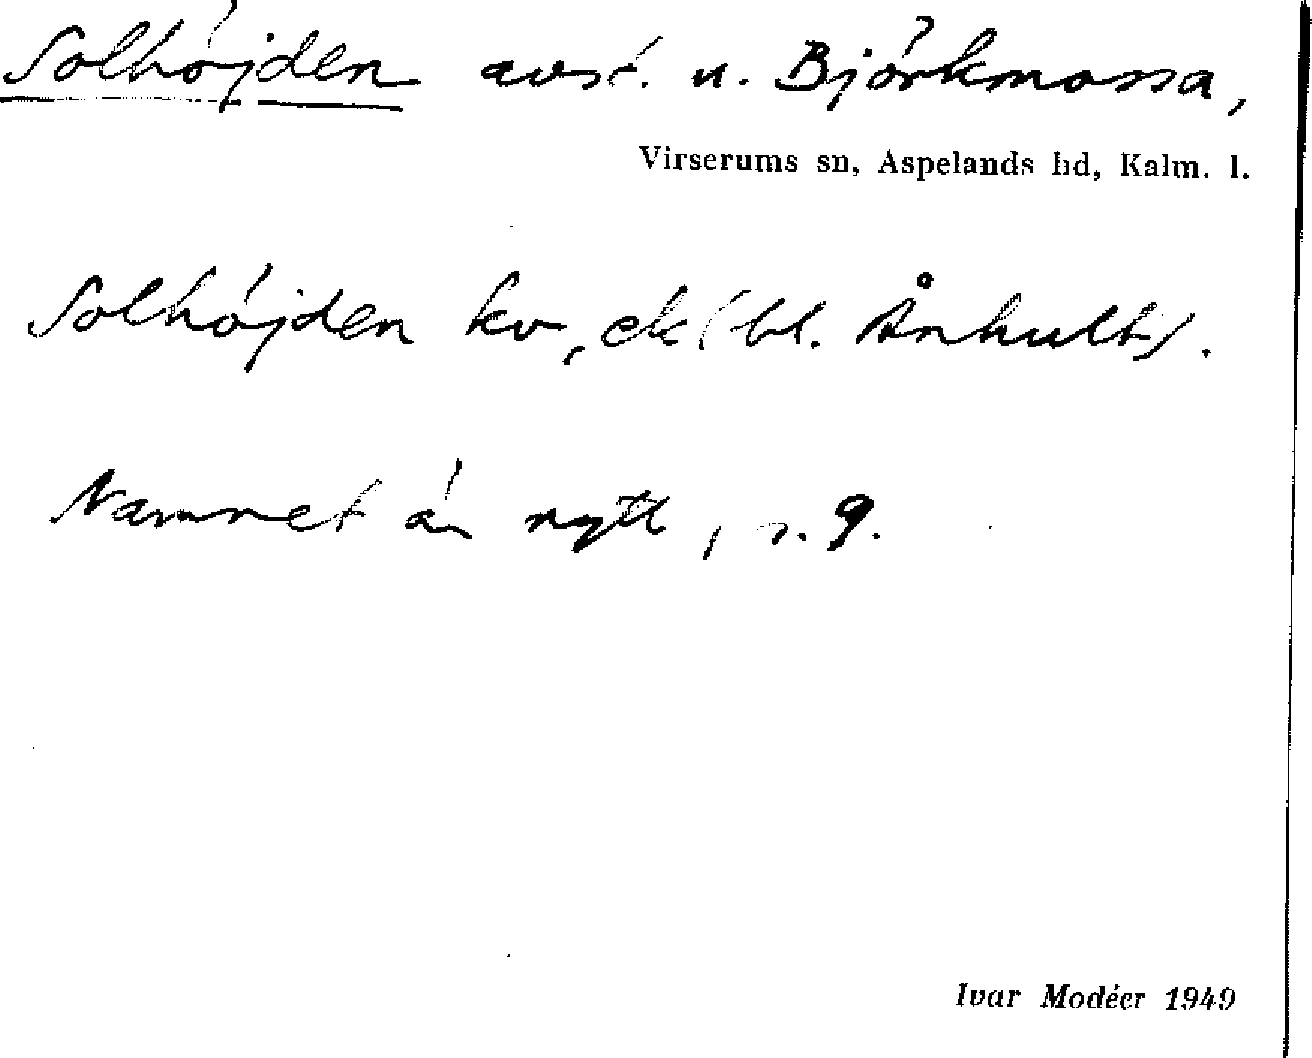 Solhöjden avst. u. Björkmossa,
Virserums sn, Aspelands hd, Kalm. l.
Solhöjden kv, ek (bl. Ånhult).
Namnet är nytt, s. 9.
Ivar Modéer 1949